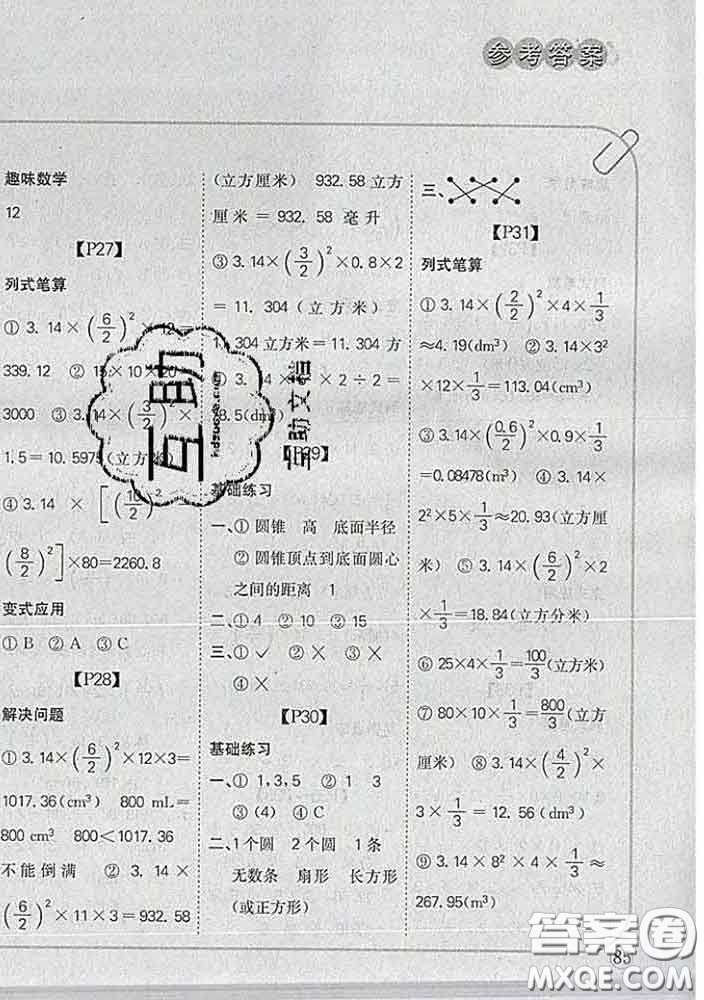 参考答案
趣味数学
12
【P27】
列式笔算
① 3.14×(6/2)²×12=
339.12 ② 15×10×20=
3000 ③ 3.14×(3/2)²×
1.5=10.5975(立方米)
④ 3.14 × [(10/2)²-
(8/2)²]×80=2260.8
变式应用
①B ②A ③C
【P28】
解决问题
① 3.14×(6/2)²×12×3=
1017.36(cm³) 800 mL=
800 cm³ 800<1017.36
不能倒满 ② 3.14×
(6/2)²×11×3=932.58
(立方厘米) 932.58立方
厘米=932.58 毫升
③ 3.14×(3/2)²×0.8×2
=11.304(立方米)
304立方米
×2÷2=
8.5(dm³)
基础练习
一、① 圆锥 高 底面半径
② 圆锥顶点到底面圆心
之间的距离 1
二、①4 ②10 ③15
三、①✓ ②× ③×
④×
【P30】
基础练习
一、①1,3,5 ②1 3
③(4) ④C
二、1个圆 2个圆 1条
无数条 扇形 长方形
(或正方形)
三、
【P31】
列式笔算
① 3.14×(2/2)²×4×1/3
≈4.19(dm³) ② 3.14×3²
×12×1/3=113.04(cm³)
③ 3.14×(0.6/2)²×0.9×1/3
=0.08478(m³) ④ 3.14×
2²×5×1/3≈20.93(立方厘
米) ⑤ 3.14×(6/2)²×2
×1/3=18.84(立方分米)
⑥ 25×4×1/3=100/3(立方米)
⑦ 80×10×1/3=800/3(立方
厘米) ⑧ 3.14×(4/2)²×
3×1/3=12.56(dm³)
⑨ 3.14×8²×4×1/3≈
267.95(m³)
85
互助
互助文档
答案圈
MXQE.COM